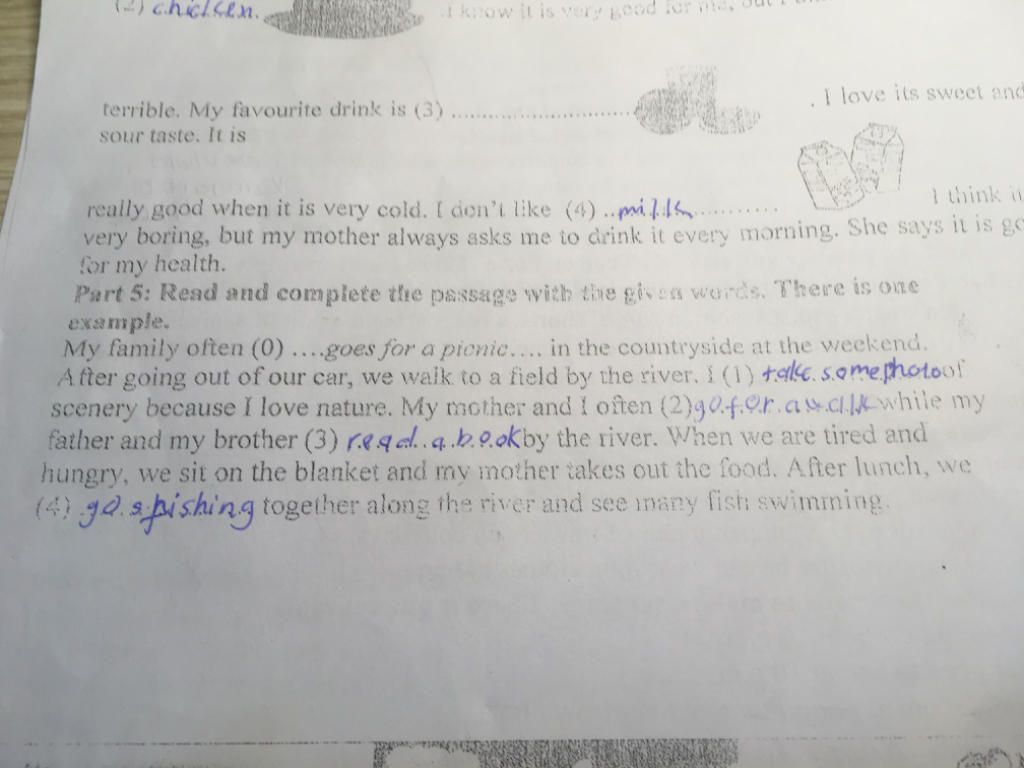 (2) chicken. I know it is very good for me, but I
terrible. My favourite drink is (3) ................................ . I love its sweet and
sour taste. It is
really good when it is very cold. I don't like (4) ..milk............... I think it
very boring, but my mother always asks me to drink it every morning. She says it is go
for my health.
Part 5: Read and complete the passage with the given words. There is one
example.
My family often (0) ....goes for a picnic.... in the countryside at the weekend.
After going out of our car, we walk to a field by the river. I (1) take some photo of
scenery because I love nature. My mother and I often (2) go for a walk while my
father and my brother (3) read a book by the river. When we are tired and
hungry, we sit on the blanket and my mother takes out the food. After lunch, we
(4) go s pishing together along the river and see many fish swimming.